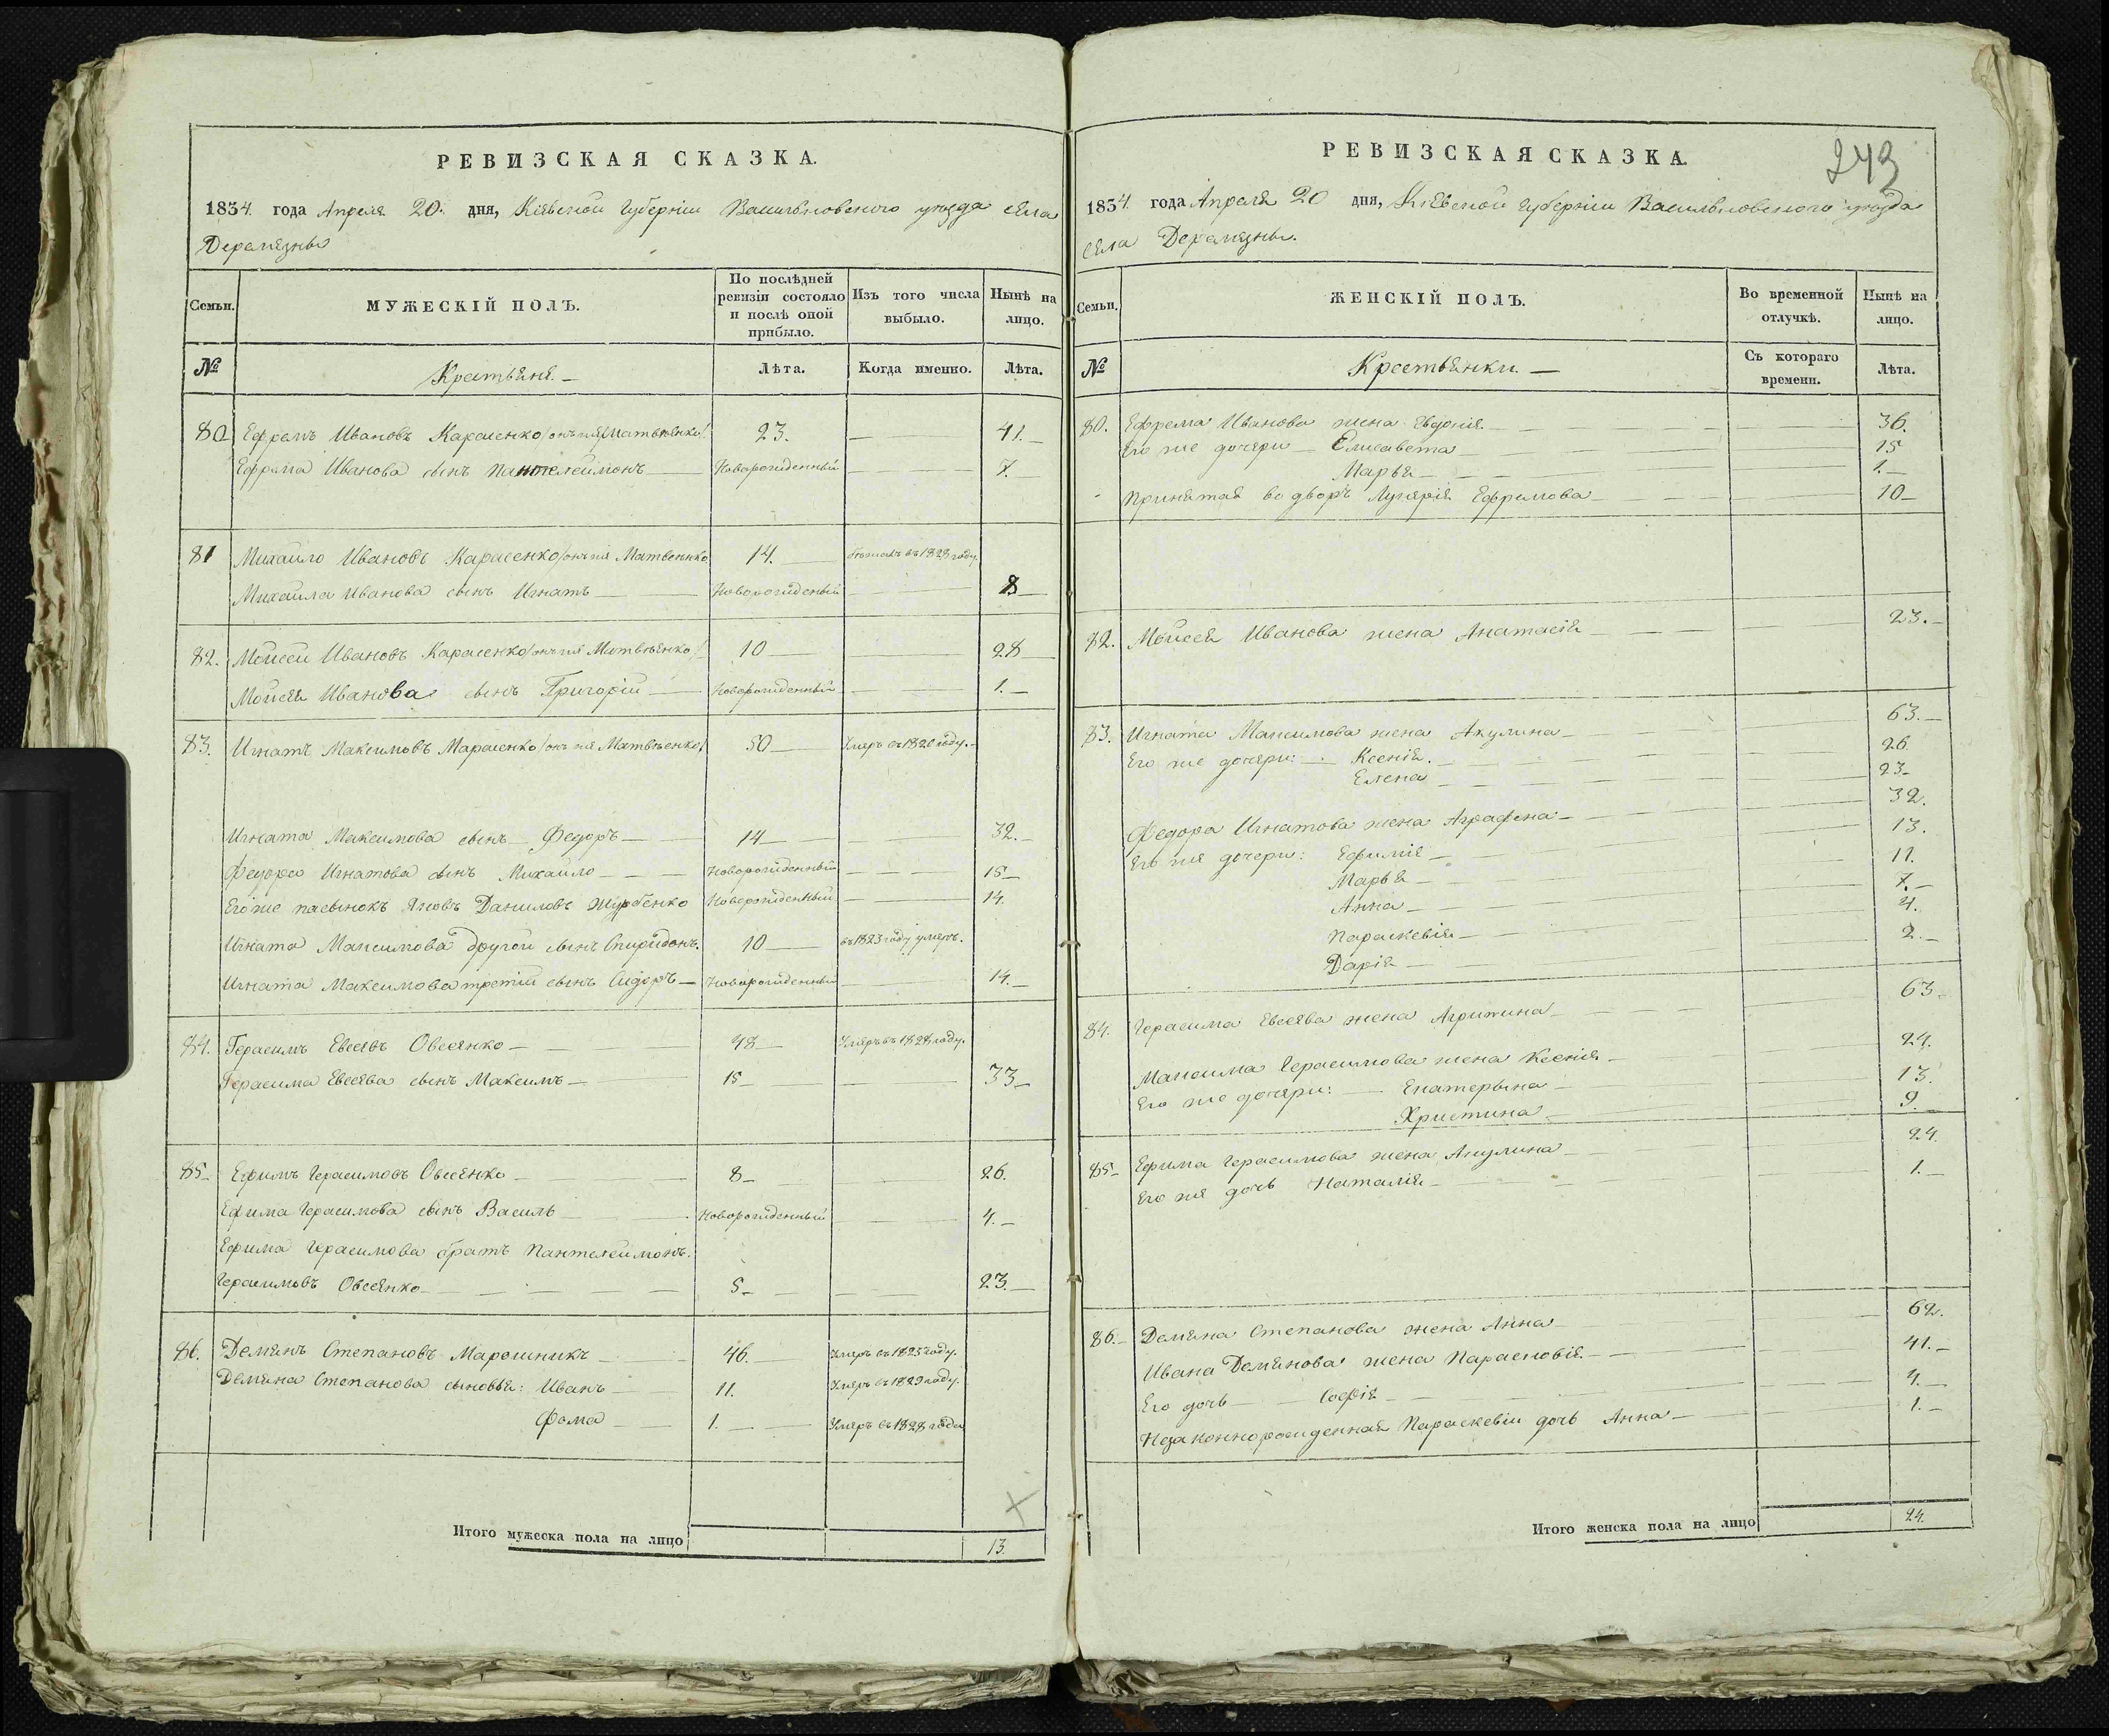 РЕВИЗСКАЯ СКАЗКА.
1834. года Апреля 20. дня, Кіевской Губерніи Васильковского уезда села
Деремезны
Семьи.
МУЖЕСКІЙ ПОЛЪ.
По послѣдней ревизіи состояло и послѣ оной прибыло.
Изъ того числа выбыло.
Нынѣ на лицо.
№
Крестьяне. —
Лѣта.
Когда именно.
Лѣта.
80 Ефремъ Ивановъ Карасенко /онъ же Матвѣенко/ 23. — 41. —
Ефрема Иванова сынъ Пантелеймонъ — Новорожденный — 7. —
81 Михайло Ивановъ Карасенко /онъ же Матвѣенко 14. — бѣжалъ въ 1828 году.
Михайла Иванова сынъ Игнатъ — Новорожденый — 8 —
82. Мойсей Ивановъ Карасенко /онъ же Матвѣенко/ 10 — 28 —
Мойсея Иванова сынъ Григорій — Новорожденный — 1. —
83. Игнатъ Максимовъ Марасенко /онъ же Матвѣенко/ 50 — Умеръ въ 1820 году. —
Игната Максимова сынъ Федоръ — 14 — 32. —
Федора Игнатова сынъ Михайло — Новорожденный — 15 —
Его же пасынокъ Яковъ Даниловъ Журбенко Новорожденный — 14.
Игната Максимова другой сынъ Спиридонъ. 10 — въ 1823 году умеръ.
Игната Максимова третій сынъ Сидоръ — Новорожденный — 14. —
84. Герасимъ Евсеевъ Овсеенко — 48 — Умеръ въ 1828 году.
Герасима Евсеева сынъ Максимъ — 15 — 33 —
85 — Ефимъ Герасимовъ Овсеенко — 8 — 26.
Ефима Герасимова сынъ Василь — Новорожденный — 4. —
Ефима Герасимова братъ Пантелеймонъ.
Герасимовъ Овсеенко — 5 — 23. —
86. Демянъ Степановъ Марошникъ — 46. — Умеръ въ 1825 году.
Демяна Степанова сыновья: Иванъ — 11. Умеръ въ 1829 году.
Фома — 1. — Умеръ въ 1828 году
Итого мужеска пола на лицо 13.
РЕВИЗСКАЯ СКАЗКА.
243
1834. года Апреля 20 дня, Кіевской Губерніи Васильковского уезда
села Деремезны.
Семьи.
ЖЕНСКІЙ ПОЛЪ.
Во временной отлучкѣ.
Нынѣ на лицо.
№
Крестьянки. —
Съ котораго времени.
Лѣта.
80. Ефрема Иванова жена Евдокія. — 36.
Его же дочери — Елисавета — 15
Марья — 1. —
Принятая во дворъ Лукерія Ефремова — 10 —
82. Мойсея Иванова жена Анатасія — 23. —
83. Игната Максимова жена Акулина — 63. —
Его же дочери: — Ксенія. — 26
Елена — 23 —
Федора Игнатова жена Аграфена — 32.
Его же дочери: Ефимія — 13.
Марья — 11.
Анна — 7. —
Параскевія — 4.
Дарія — 2. —
84. Герасима Евсеева жена Агрипина — 63 —
Максима Герасимова жена Ксенія — 24.
Его же дочери: — Екатерына — 13.
Христина — 9. —
85 — Ефима Герасимова жена Акулина — 24.
Его же дочь Наталія — 1. —
86. — Демяна Степанова жена Анна — 62.
Ивана Демянова жена Парасковія. — 41. —
Его дочь — Софія — 4. —
Незаконнорожденная Параскевіи дочь Анна — 1. —
Итого женска пола на лицо 24.